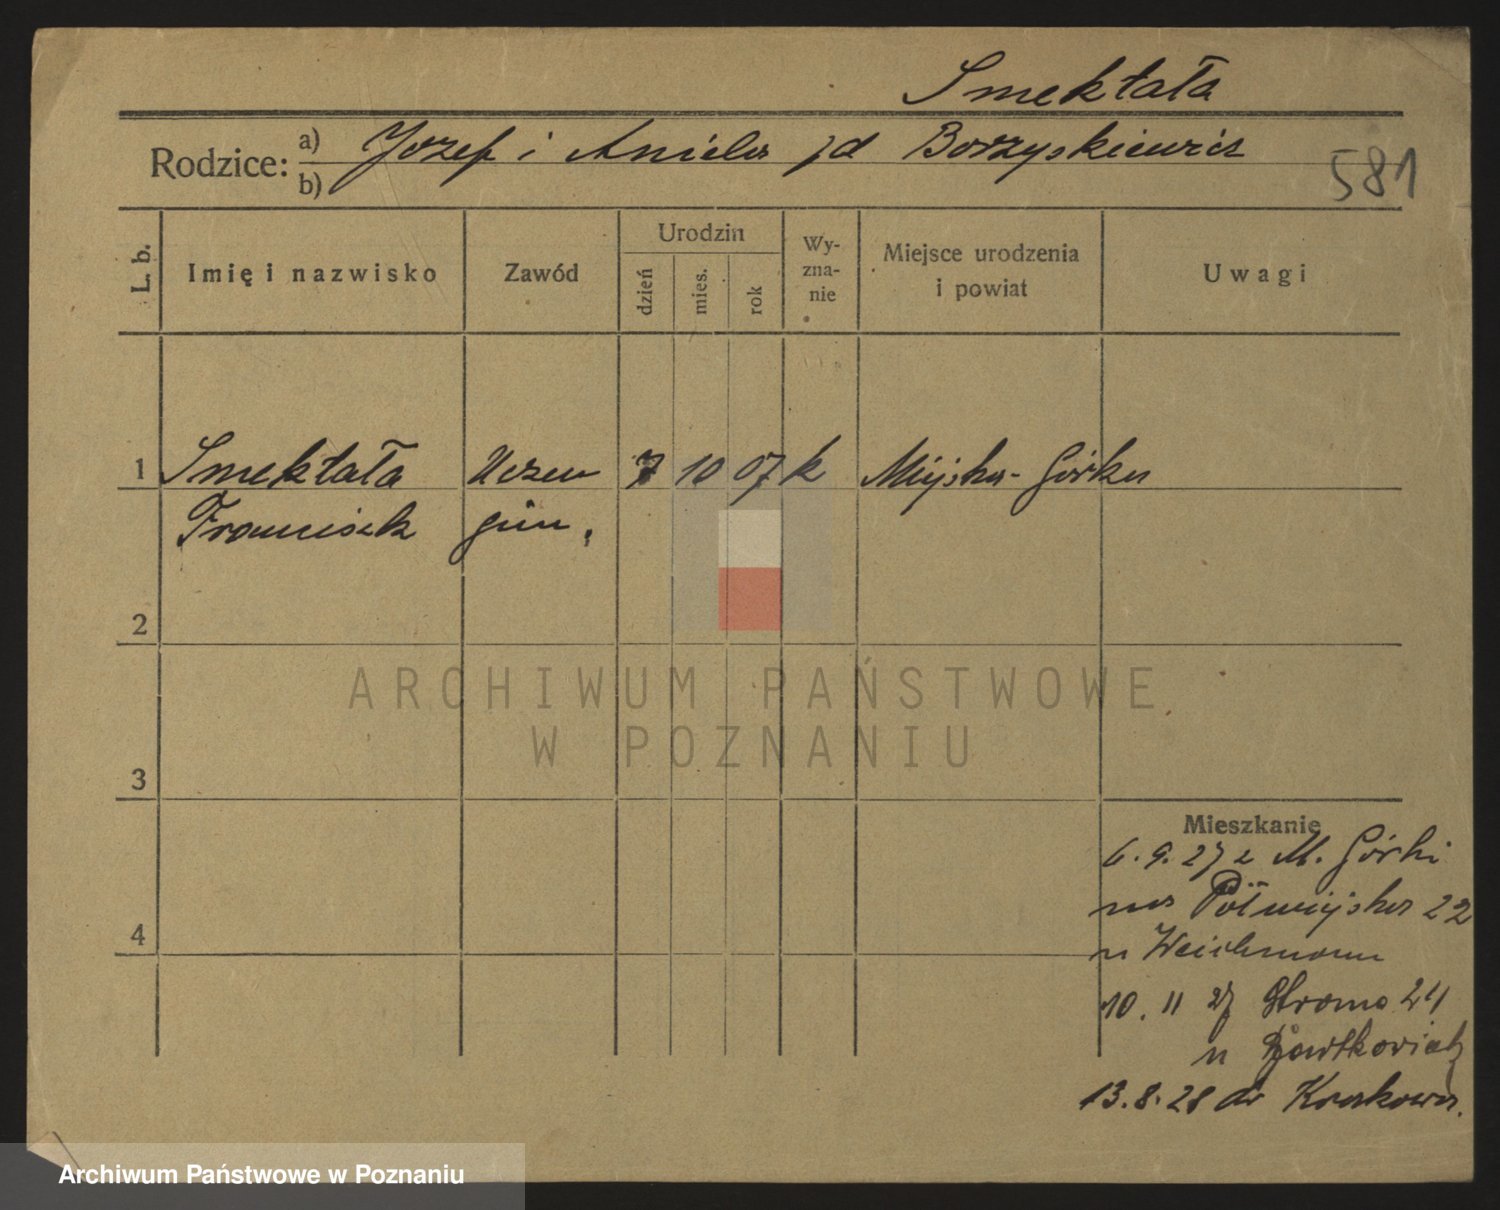 Smektała
Rodzice: a) Jozef i Aniela zd Borzyskiewicz
b)
581
L. b. Imię i nazwisko Zawód Urodzin dzień mies. rok Wy-zna-nie Miejsce urodzenia i powiat Uwagi
1 Smektała Uczeu 7 10 07 k Miejska-Górka
Franciszk gim.
2
ARCHIWUM PAŃSTWOWE
W POZNANIU
3
Mieszkanie
6.9.27 z M. Górki
na Półwiejska 22
4
u Weichmann
10. 11 27 Stroma 24
u
13.8.28 do Krakowa.
Archiwum Państwowe w Poznaniu